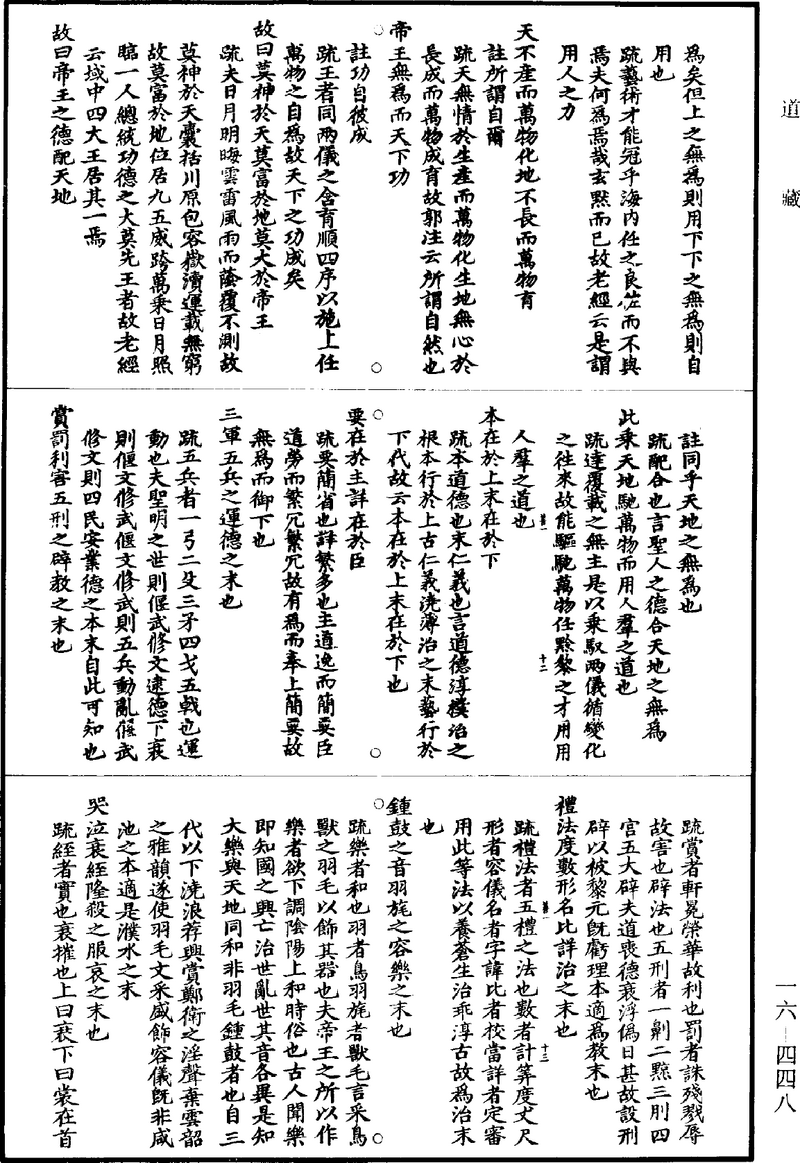 道藏
為矣但上之無為則用下下之無為則自
用也
疏藝術才能冠乎海內任之良佐而不與
焉夫何為焉哉玄默而已故老經云是謂
用人之力
天不產而萬物化地不長而萬物育
註所謂自爾
疏天無情於生產而萬物化生地無心於
長成而萬物成育故郭注云所謂自然也
帝王無為而天下功
註功自彼成
疏王者同兩儀之含育順四序以施上任
萬物之自為故天下之功成矣
故曰莫神於天莫富於地莫大於帝王
疏夫日月明晦雲雷風雨而蔭覆不測故
莫神於天囊括川原包容嶽瀆運載無窮
故莫富於地位居九五威跨萬乘日月照
臨一人總統功德之大莫先王者故老經
云域中四大王居其一焉
故曰帝王之德配天地
註同乎天地之無為也
疏配合也言聖人之德合天地之無為
此乘天地馳萬物而用人羣之道也
疏達覆載之無主是以乘馭兩儀循變化
之往來故能驅馳萬物任黔黎之才用用
人羣之道也
十二
本在於上末在於下
疏本道德也末仁義也言道德淳樸治之
根本行於上古仁義澆薄治之末藝行於
下代故云本在於上末在於下也
要在於主詳在於臣
疏要簡省也詳繁多也主道逸而簡要臣
道勞而繁冗繁冗故有為而奉上簡要故
無為而御下也
三軍五兵之運德之末也
疏五兵者一弓二殳三矛四戈五戟也運
動也夫聖明之世則偃武修文逮德下衰
則偃文修武偃文修武則五兵動亂偃武
修文則四民安業德之本末自此可知也
賞罰利害五刑之辟教之末也
疏賞者軒冕榮華故利也罰者誅殘戮辱
故害也辟法也五刑者一劓二黥三刖四
宮五大辟夫道喪德衰浮偽日甚故設刑
辟以被黎元既虧理本適為教末也
禮法度數形名比詳治之末也
疏禮法者五禮之法也數者計筭度丈尺
十三
形者容儀名者字諱比者校當詳者定審
用此等法以養蒼生治乖淳古故為治末
也
鍾鼓之音羽旄之容樂之末也
疏樂者和也羽者鳥羽旄者獸毛言采鳥
獸之羽毛以飾其器也夫帝王之所以作
樂者欲下調陰陽上和時俗也古人聞樂
即知國之興亡治世亂世其音各異是知
大樂與天地同和非羽毛鍾鼓者也自三
代以下澆浪荐興賞鄭衛之淫聲棄雲韶
之雅韻遂使羽毛文采盛飾容儀既非咸
池之本適是濮水之末
哭泣衰絰隆殺之服哀之末也
疏絰者實也衰摧也上曰衰下曰裳在首
一六—四四八